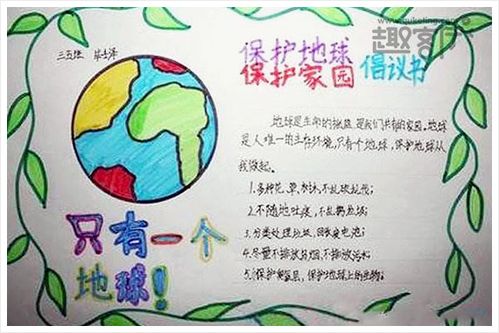 趣客厅
www.quketing.com
三五班
保护地球
保护家园 倡议书
地球是生命的摇篮,是我们共有的家园。地球
是人唯一的生存环境,只有个地球,保护地球从
我做起。
1.多种花、草、树木,不乱砍乱伐;
2.不随地吐痰,不乱扔垃圾;
3.分类处理垃圾,回收废电池;
4.尽量不排放,不排放污水
5.保护臭氧层,保护地球上的生物;
只有一个
地球!